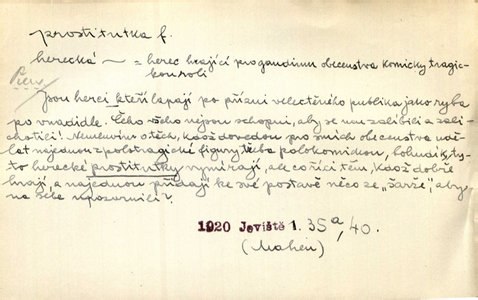 prostitutka f.
herecká ~ = herec hrající pro gaudium obecenstva komicky tragic-
kou roli
Jsou herci, kteří lapají po přízni velectěného publika jako ryba
po vnadidle. Čeho všeho nejsou schopni, aby se mu zalíbili a zali-
chotili! Nemluvím o těch, kdož dovedou pro smích obecenstva udě-
lat najednou z polotragické figury třeba polokomickou, bohudík, ty-
to herecké prostitutky vymírají, ale co říci těm, kdož dobře
hrají, a najednou přidají ke své postavě něco ze „šarže", aby
na sebe upozornili?
1920 Jeviště 1. 35a, 40.
(Mahen)